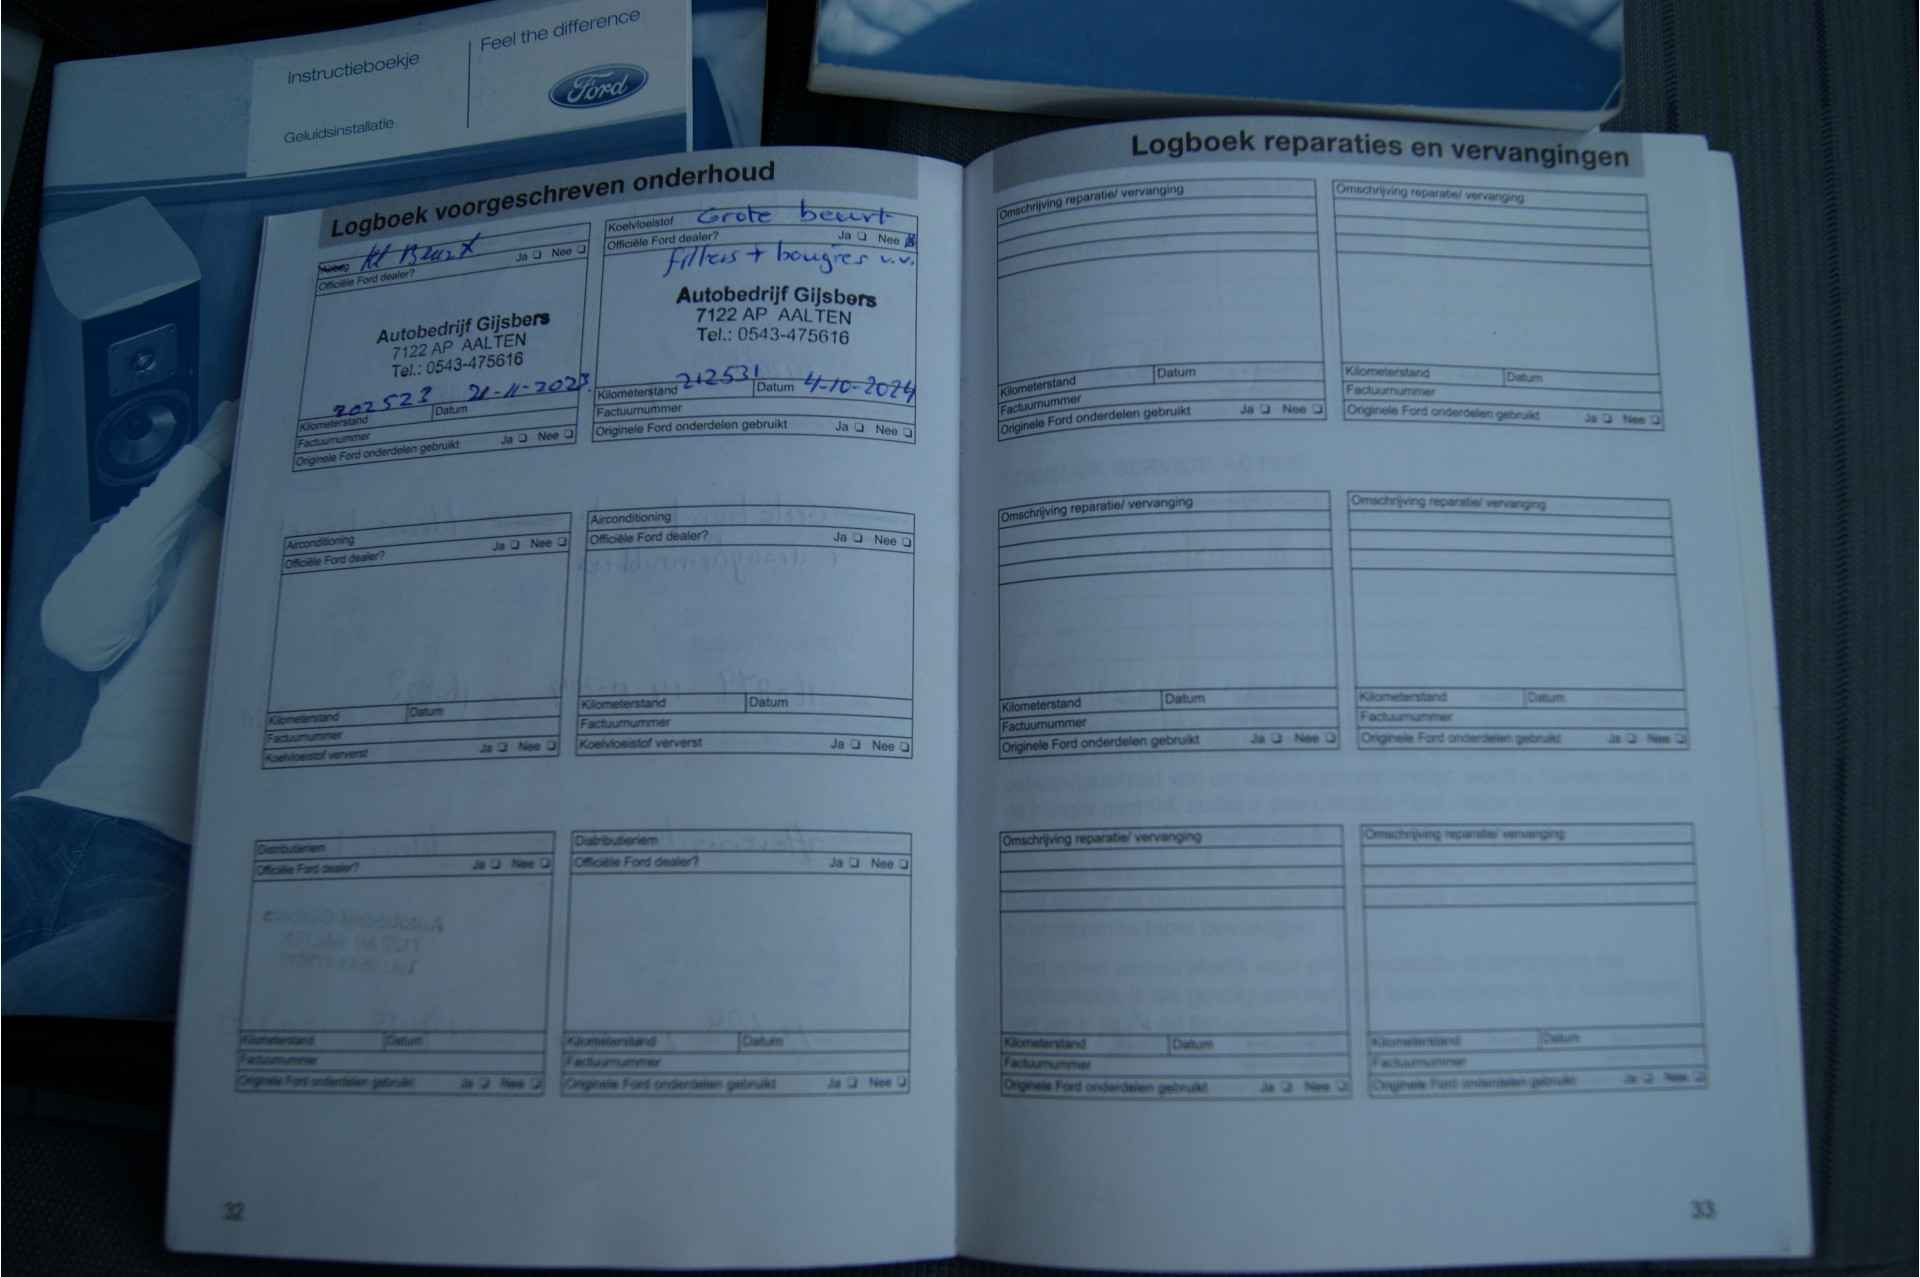 Instructieboekje
Feel the difference
Ford
Geluidsinstallatie
Logboek voorgeschreven onderhoud
Kl Beurt
Ja Nee
Officiële Ford dealer?
Autobedrijf Gijsbers
7122 AP AALTEN
Tel.: 0543-475616
202523 21-11-2023.
Kilometerstand Datum
Factuurnummer
Originele Ford onderdelen gebruikt Ja Nee
Koelvloeistof Grote beurt
Officiële Ford dealer? Ja Nee
filters + bougies v.v.
Autobedrijf Gijsbers
7122 AP AALTEN
Tel.: 0543-475616
Kilometerstand 212531 Datum 4-10-2024
Factuurnummer
Originele Ford onderdelen gebruikt Ja Nee
Airconditioning
Officiële Ford dealer? Ja Nee
Kilometerstand Datum
Factuurnummer
Koelvloeistof ververst Ja Nee
Airconditioning
Officiële Ford dealer? Ja Nee
Kilometerstand Datum
Factuurnummer
Koelvloeistof ververst Ja Nee
Distributieriem
Officiële Ford dealer? Ja Nee
Kilometerstand Datum
Factuurnummer
Originele Ford onderdelen gebruikt Ja Nee
Distributieriem
Officiële Ford dealer? Ja Nee
Kilometerstand Datum
Factuurnummer
Originele Ford onderdelen gebruikt Ja Nee
32
Logboek reparaties en vervangingen
Omschrijving reparatie/ vervanging
Kilometerstand Datum
Factuurnummer
Originele Ford onderdelen gebruikt Ja Nee
Omschrijving reparatie/ vervanging
Kilometerstand Datum
Factuurnummer
Originele Ford onderdelen gebruikt Ja Nee
Omschrijving reparatie/ vervanging
Kilometerstand Datum
Factuurnummer
Originele Ford onderdelen gebruikt Ja Nee
Omschrijving reparatie/ vervanging
Kilometerstand Datum
Factuurnummer
Originele Ford onderdelen gebruikt Ja Nee
Omschrijving reparatie/ vervanging
Kilometerstand Datum
Factuurnummer
Originele Ford onderdelen gebruikt Ja Nee
Omschrijving reparatie/ vervanging
Kilometerstand Datum
Factuurnummer
Originele Ford onderdelen gebruikt Ja Nee
33